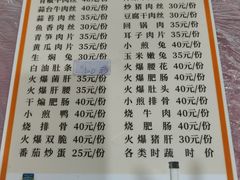 青椒肉丝 40元/份 炒猪肝 35元/份
蒜台肉丝 40元/份 豆腐干肉丝 30元/份
鱼香肉丝 30元/份 回锅肉 30元/份
青笋肉片 35元/份 耳子肉片 35元/份
黄瓜肉片 35元/份 小煎兔 40元/份
生焖兔 30元/份 玉米嫩兔 40元/份
白油肚条 火爆腰花 40元/份
火爆菌肝 35元/份 火爆肚头 40元/份
火爆肥肠 40元/份 火爆黄喉 40元/份
干煸肥肠 40元/份 小煎排骨 40元/份
小煎鸭 40元/份 烧牛肉 40元/份
烧排骨 40元/份 烧肥肠 40元/份
火爆双脆 40元/份 火爆郡肝 35元/份
番茄炒蛋 25元/份 各类时蔬 时价